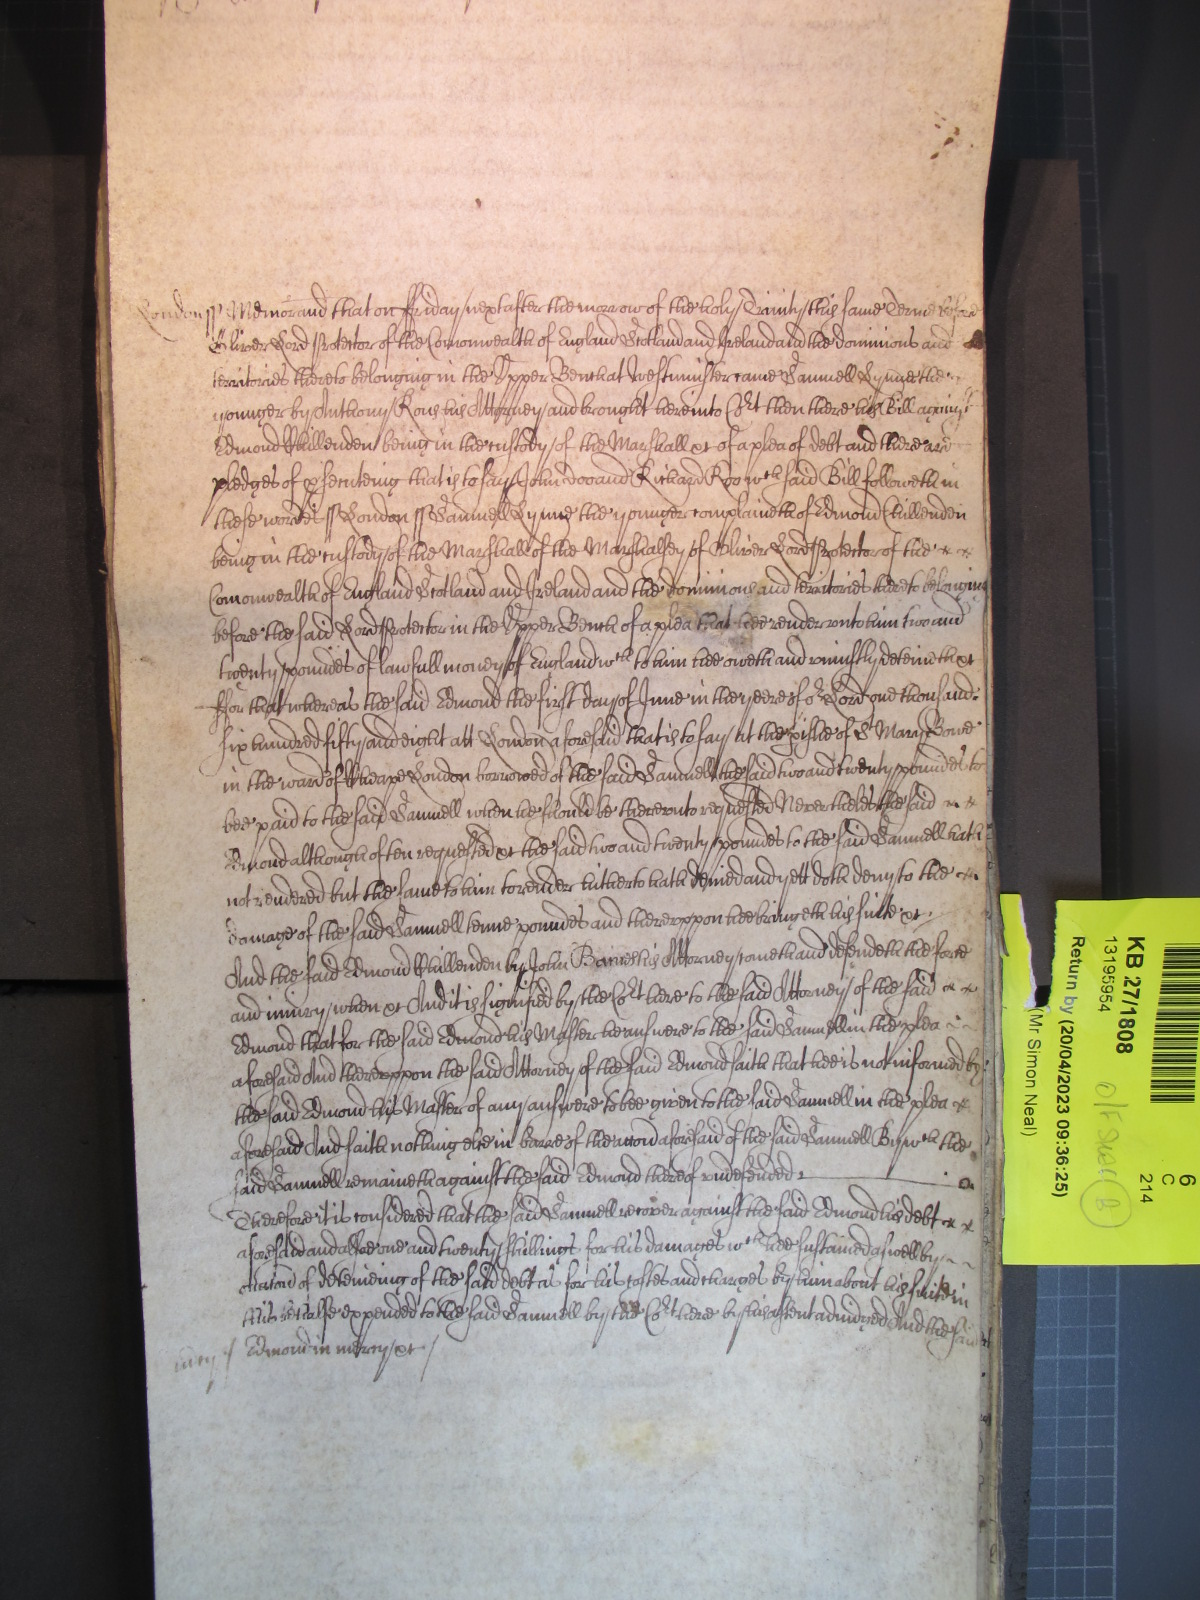 London ss Memorand that on Friday next after the morrow of the holy Trinity this same Terme before
Oliver Lord Protector of the Comonwealth of England Scotland and Ireland and the dominions and
territories thereto belonging in the Upper Bench at Westminster came Samuell Lynne the
younger by Anthony Rous his Attorney and brought here into Cort then there his Bill against
Edmond Chillenden being in the custody of the Marshall &c of a plea of debt and there are
pledges of prsecuteing that is to say John Doo and Richard Roo wch said Bill followeth in
these wordes ss London ss Samuell Lynne the younger complaineth of Edmond Chillenden
being in the custody of the Marshall of the Marshalsey of Oliver Lord Protector of the
Comonwealth of England Scotland and Ireland and the dominions and territories thereto belonging
before the said Lord Protector in the Upper Bench of a plea that hee render unto him two and
twenty poundes of lawfull money of England wch to him hee oweth and uniustly deteineth &c
For that whereas the said Edmond the first day of June in the yeere of or Lord one thousand
six hundred fifty and eight att London aforesaid that is to say at the pishe of St Mary Bowe
in the ward of Cheape London borrowed of the said Samuell the said two and twenty poundes to
bee paid to the said Samuell when he should be thereunto requested Neverthelesse the said
Edmond although often requested &c the said two and twenty poundes to the said Samuell hath
not rendered but the same to him to render hitherto hath denied and yett doth deny to the
damage of the said Samuell tenne poundes and thereuppon hee bringeth his suite &c
And the said Edmond Chillenden by John Baines his Attorney cometh and defendeth the force
and iniury when &c And it is signified by the Cort here to the said Attorney of the said
Edmond that for the said Edmond his Master he answere to the said Samuell in the plea
aforesaid And thereuppon the said Attorney of the said Edmond saith that hee is not informed by
the said Edmond his Master of any answere to bee given to the said Samuell in the plea
aforesaid And saith nothing else in barre of the accon aforesaid of the said Samuell By wch the
said Samuell remaineth against the said Edmond thereof undefended
Therefore it is considered that the said Samuell recover against the said Edmond his debt
aforesaid and alsoe one and twenty shillings for his damages wch hee sustained aswell by
occacon of deteineing of the said debt as for his costes and charges by him about his suite in
this behalfe expended to the said Samuell by the Cort here by his assent adiudged And the said
mercy Edmond in mercy &c
KB 27/1808
13195954
Return by (20/04/2023 09:36:25)
(Mr Simon Neal)
6
C
214